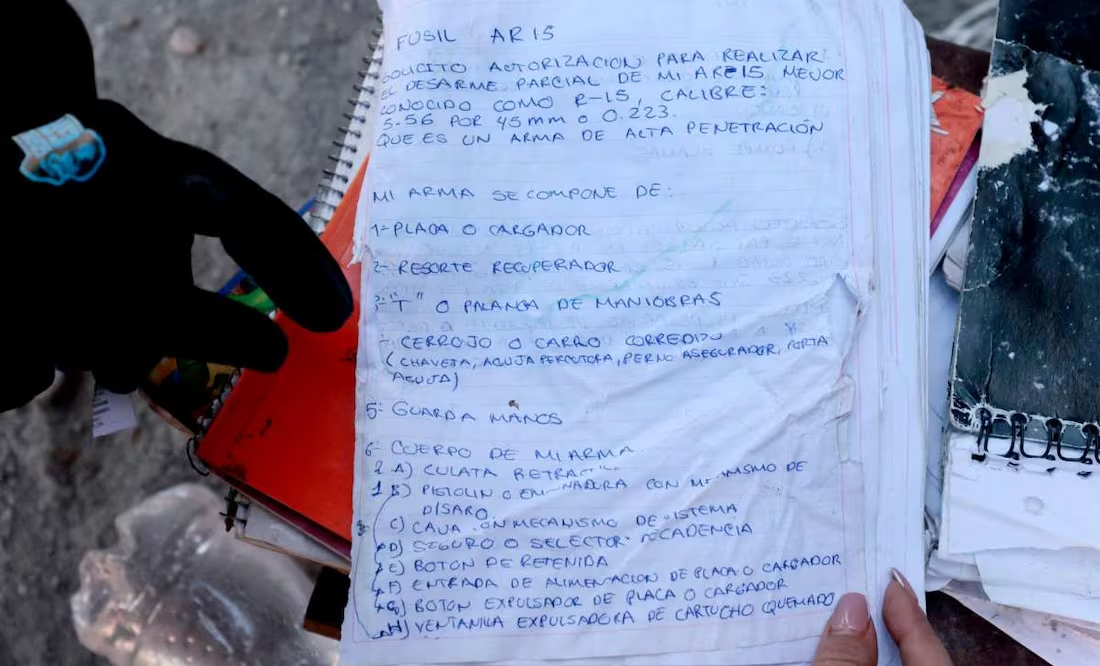 FUSIL AR15
SOLICITO AUTORIZACION PARA REALIZAR
EL DESARME PARCIAL DE MI AR-15 MEJOR
CONOCIDO COMO R-15, CALIBRE:
5.56 POR 45mm o 0.223.
QUE ES UN ARMA DE ALTA PENETRACIÓN
MI ARMA SE COMPONE DE:
1- PLACA O CARGADOR
2- RESORTE RECUPERADOR
3- "T" O PALANCA DE MANIOBRAS
- CERROJO O CARRO CORREDIZO
(CHAVETA, AGUJA PERCUTORA, PERNO ASEGURADOR, PORTA
AGUJA)
5- GUARDA MANOS
6- CUERPO DE MI ARMA
A) CULATA
B) PISTOLIN O CON MECANISMO DE
DISARO
C) CAJA CON MECANISMO DE SISTEMA
D) SEGURO O SELECTOR CADENCIA
E) BOTON DE RETENIDA
F) ENTRADA DE ALIMENTACION DE PLACA O CARGADOR
G) BOTON EXPULSADOR DE PLACA O CARGADOR
H) VENTANILLA EXPULSADORA DE CARTUCHO QUEMADO